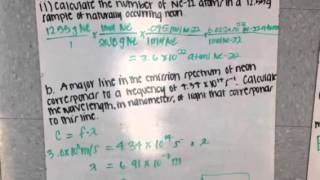 (1) calculate the number of Ne-22 atoms in a 12.55g
sample of naturally occurring neon
12.55g Ne x 1mol Ne x .0925mol Ne-22 x 6.022x10²³ Ne-22 atoms
1 20.18g Ne 1mol Ne
= 3.6 x 10²² atoms Ne-22
b. A major line in the emission spectrum of neon
corresponds to a frequency of 4.34 x 10¹⁴ s⁻¹. Calculate
the wavelength, in nanometers, of light that corresponds
to this line.
c = f·λ
3.0x10⁸ m/s = 4.34 x 10¹⁴ s · λ
λ = 6.91 x 10⁻⁷ m